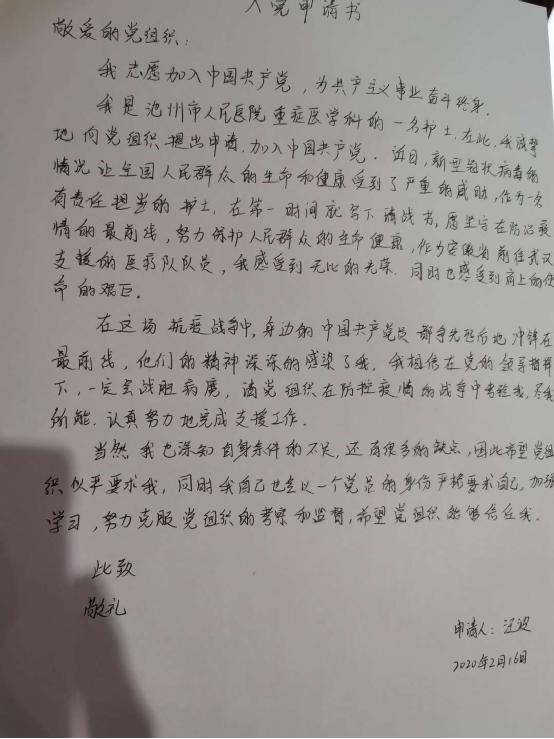 入党申请书
敬爱的党组织：
我志愿加入中国共产党，为共产主义事业奋斗终身。
我是池州市人民医院重症医学科的一名护士。在此，我诚挚
地向党组织提出申请，加入中国共产党。近日，新型冠状病毒的
情况让全国人民群众的生命和健康受到了严重的威胁，作为一名
有责任担当的护士，在第一时间就写下请战书，愿坚守在防治疫
情的最前线，努力保护人民群众的生命健康，作为安徽省前往武汉
支援的医疗队队员，我感受到无比的光荣，同时也感受到肩上的使
命的艰巨。
在这场抗疫战争中，身边的中国共产党员都争先恐后地冲锋在
最前线，他们的精神深深的感染了我。我相信在党的领导指挥
下，一定会战胜病魔，请党组织在防控疫情的战争中考验我，尽我
所能，认真努力地完成支援工作。
当然，我也深知自身条件的不足，还有很多的缺点，因此希望党组
织从严要求我，同时我自己也会以一个党员的身份严格要求自己，加强
学习，努力克服党组织的考察和监督，希望党组织能够信任我。
此致
敬礼
申请人：汪
2020年2月16日